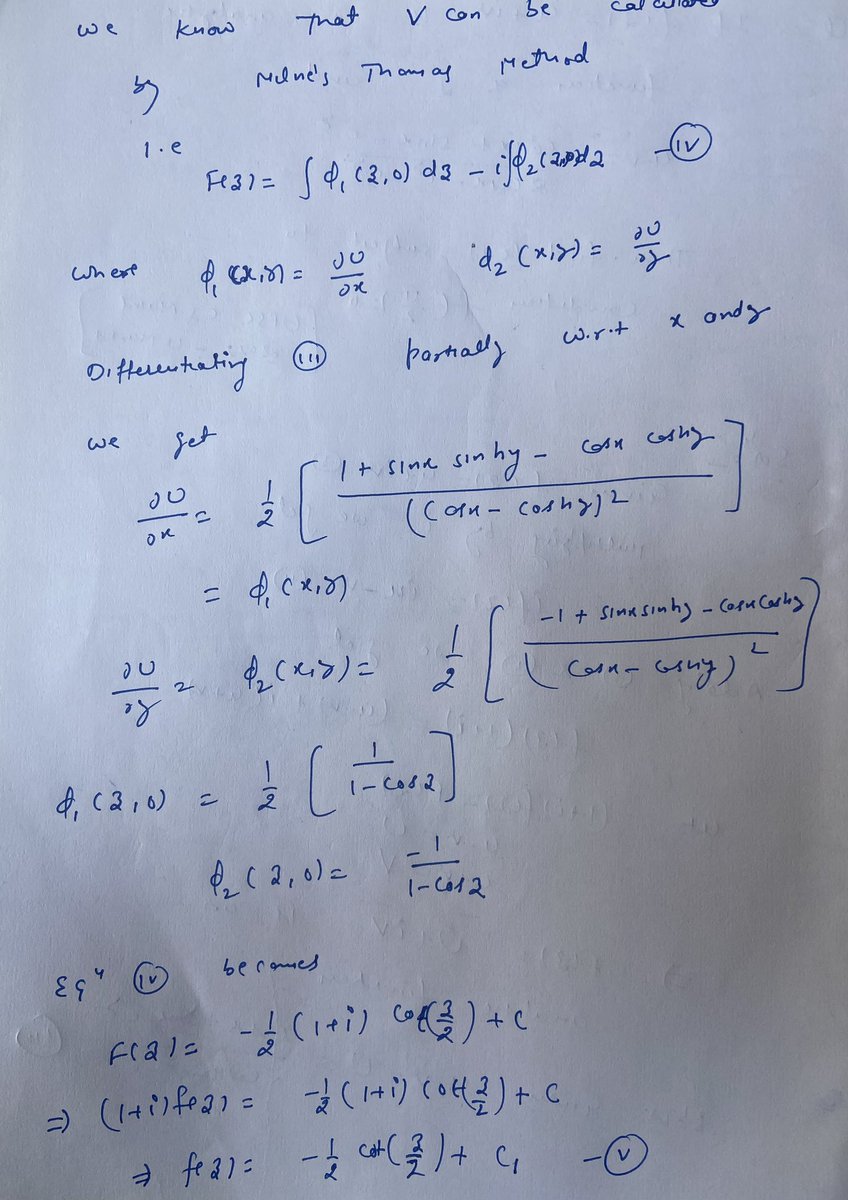 we know that V can be calculated
by Milne's Thomas Method
i.e
F(z) = ∫ φ₁(z,0) dz - i∫φ₂(z,0)dz -(IV)
where φ₁(x,y) = ∂U/∂x φ₂(x,y) = ∂U/∂y
Differentiating (III) partially w.r.t x and y
we get
∂U/∂x = 1/2 [ (1 + sinx sinhy - cosx coshy) / (cosx - coshy)² ]
= φ₁(x,y)
∂U/∂y = φ₂(x,y) = 1/2 [ (-1 + sinx sinhy - cosx coshy) / (cosx - coshy)² ]
φ₁(z,0) = 1/2 [ 1 / (1-cosz) ]
φ₂(z,0) = -1 / (1-cosz)
Eqⁿ (IV) becomes
F(z) = -1/2 (1+i) cot(z/2) + C
⇒ (1+i)f(z) = -1/2 (1+i) cot(z/2) + C
⇒ f(z) = -1/2 cot(z/2) + C₁ -(V)